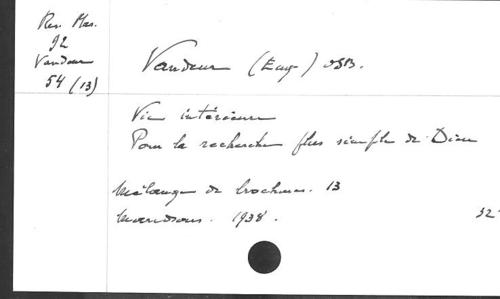 Rev. Mar.
92
Vandeur
54 (13)
Vandeur (Eug) OSB.
Vie intérieure
Pour la recherche plus simple de Dieu
Mélange de brochures. 13
Maredsous. 1938.
32